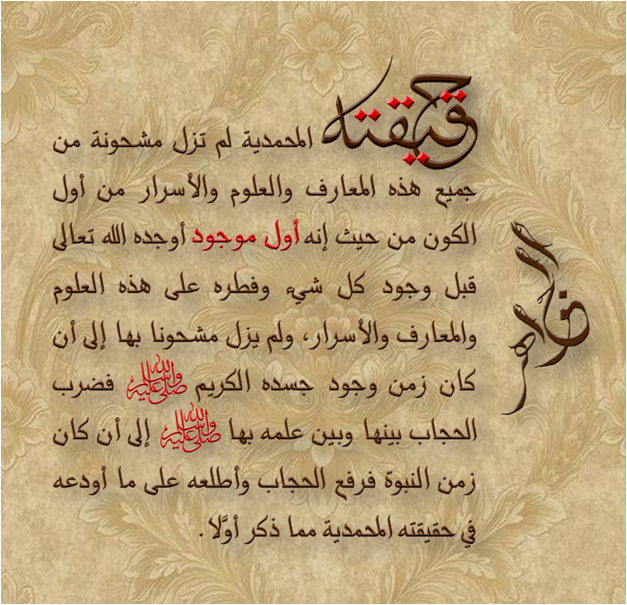 حقيقته المحمدية لم تزل مشحونة من
جميع هذه المعارف والعلوم والأسرار من أول
الكون من حيث إنه أول موجود أوجده الله تعالى
قبل وجود كل شيء وفطره على هذه العلوم
والمعارف والأسرار، ولم يزل مشحونا بها إلى أن
كان زمن وجود جسده الكريم ﷺ فضرب
الحجاب بينها وبين علمه بها ﷺ إلى أن كان
زمن النبوة فرفع الحجاب وأطلعه على ما أودعه
في حقيقته المحمدية مما ذكر أوَّلا.